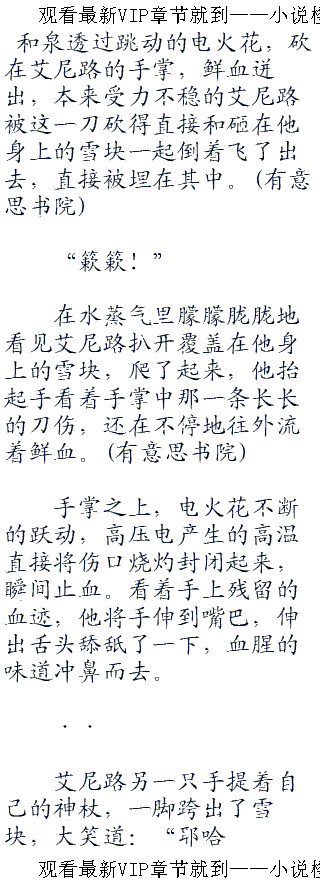 观看最新VIP章节就到——小说检
和泉透过跳动的电火花，砍
在艾尼路的手掌，鲜血迸
出，本来受力不稳的艾尼路
被这一刀砍得直接和砸在他
身上的雪块一起倒着飞了出
去，直接被埋在其中。(有意
思书院)
“簌簌！”
在水蒸气里朦朦胧胧地
看见艾尼路扒开覆盖在他身
上的雪块，爬了起来，他抬
起手看着手掌中那一条长长
的刀伤，还在不停地往外流
着鲜血。(有意思书院)
手掌之上，电火花不断
的跃动，高压电产生的高温
直接将伤口烧灼封闭起来，
瞬间止血。看着手上残留的
血迹，他将手伸到嘴巴，伸
出舌头舔舐了一下，血腥的
味道冲鼻而去。
. .
艾尼路另一只手提着自
己的神杖，一脚跨出了雪
块，大笑道：“耶哈
观看最新VIP章节就到——小说检